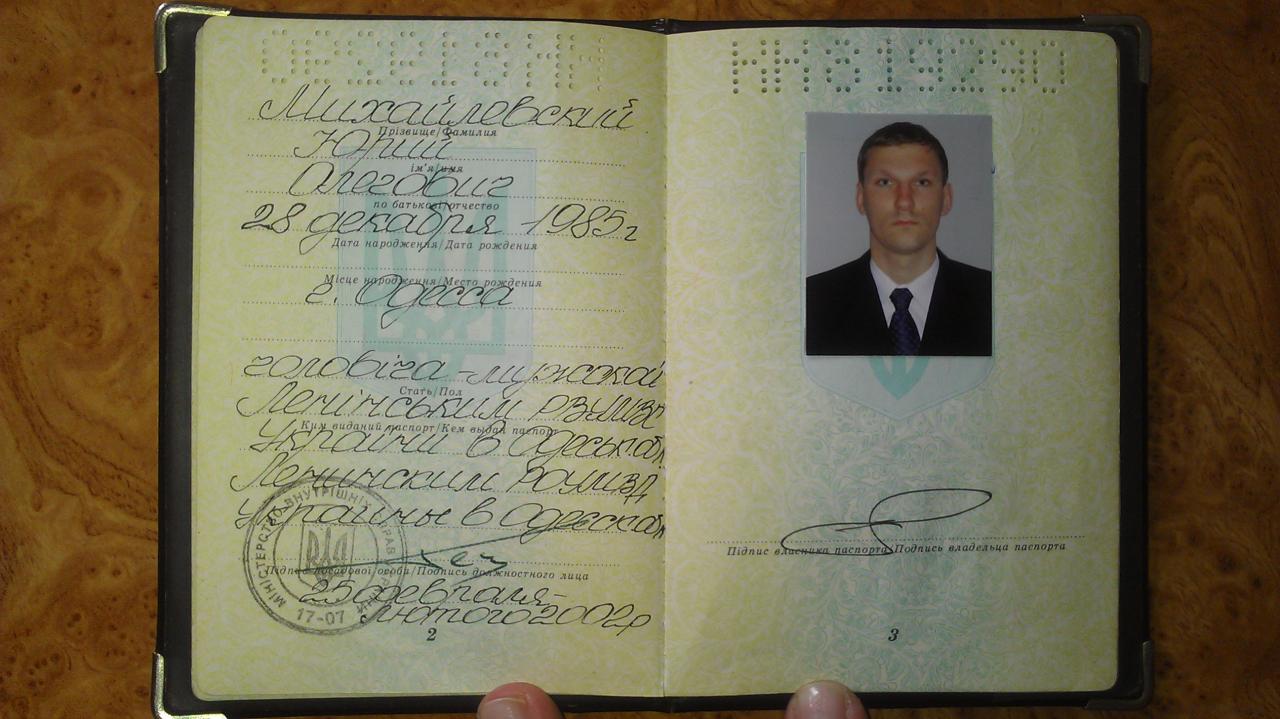 Михайловский
Прізвище/Фамилия
Юрий
ім'я/имя
Олегович
по батькові/отчество
28 декабря 1985г
Дата народження/Дата рождения
Місце народження/Место рождения
г. Одесса
чоловіча - мужской
Стать/Пол
Ленінським
Ким виданий паспорт/Кем выдан паспорт
України в
Ленинским
Украины в
МІНІСТЕРСТВО ВНУТРІШНІХ СПРАВ УКРАЇНИ
17-07
Підпис посадової особи/Подпись должностного лица
25 февраля-
лютого 2002р
2
Підпис власника паспорта/Подпись владельца паспорта
3